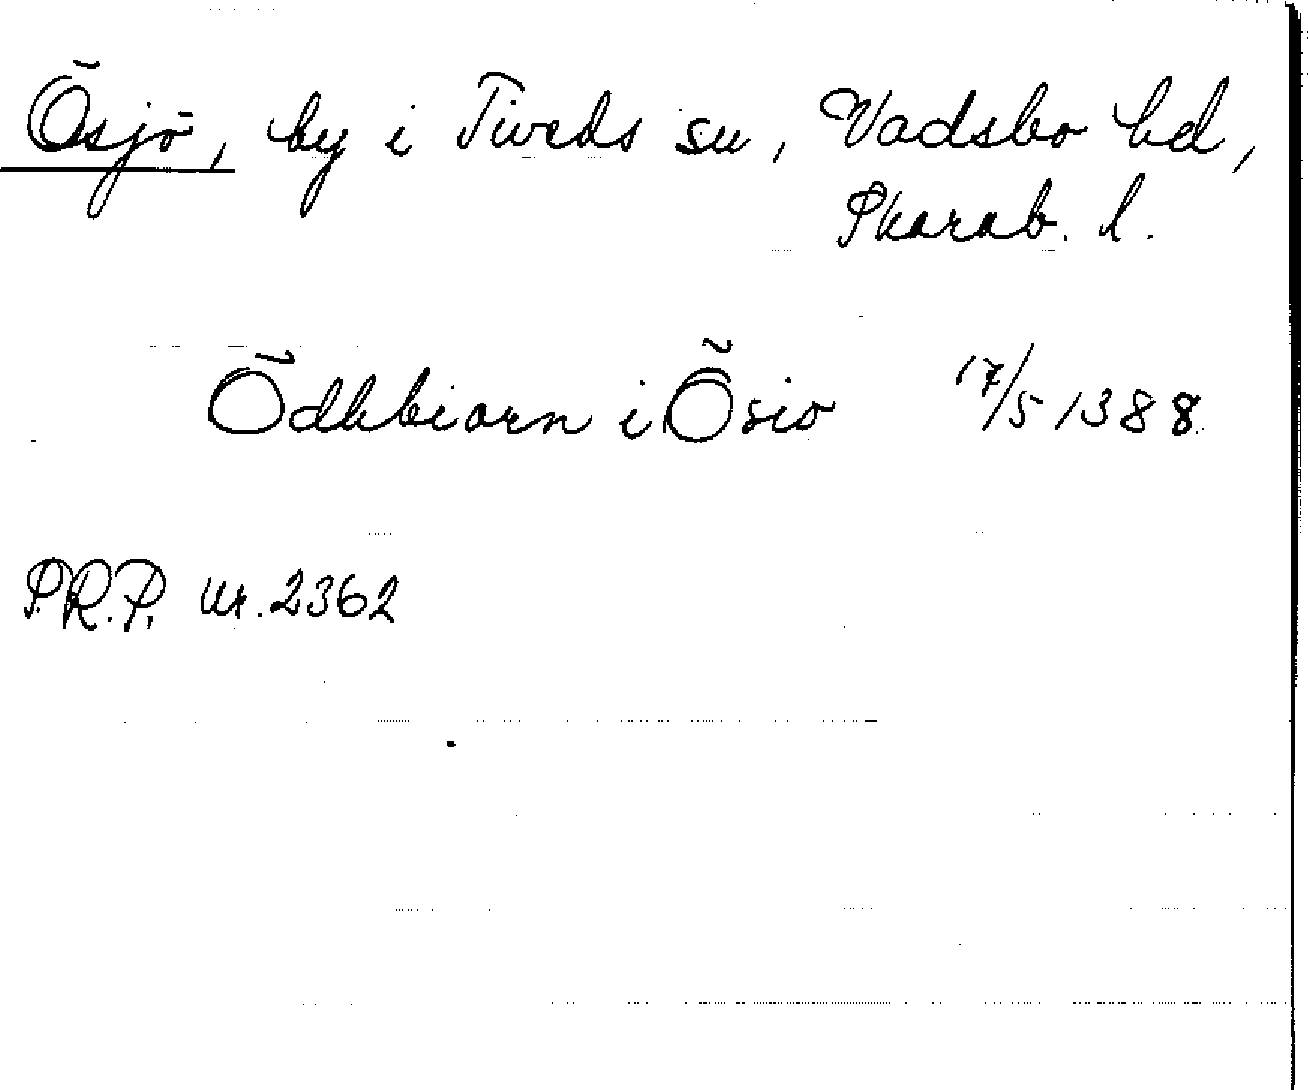 Ösjö, by i Tiveds sn, Vadsbo hd,
Skarab. l.
Ödhbiorn i Ösio 17/5 1388
S.R.P. nr. 2362